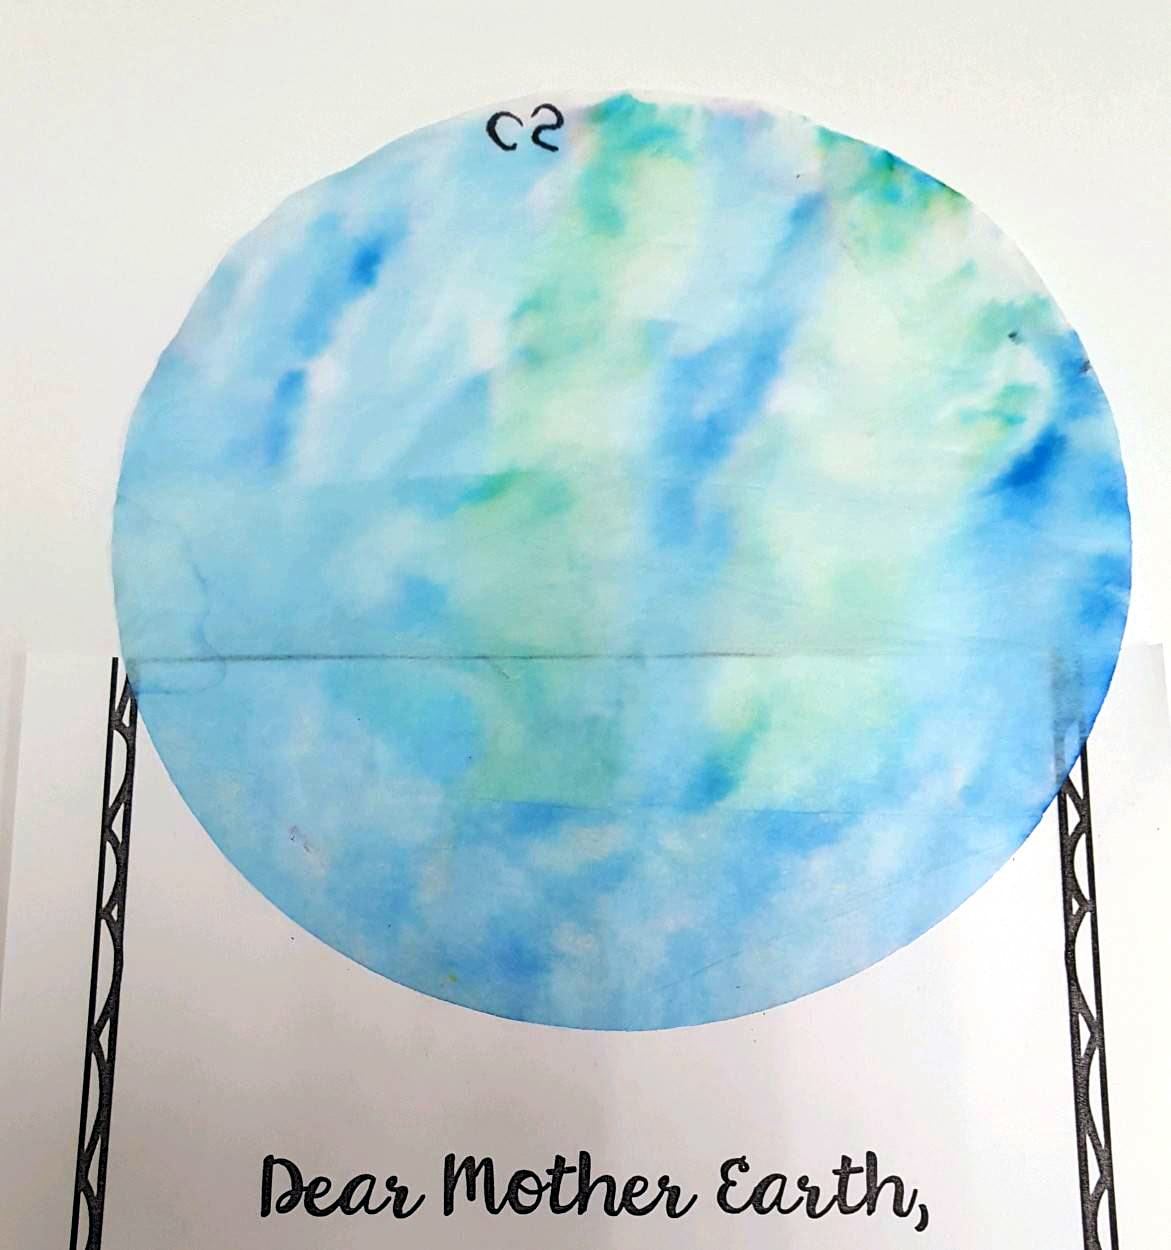 CS
Dear Mother Earth,